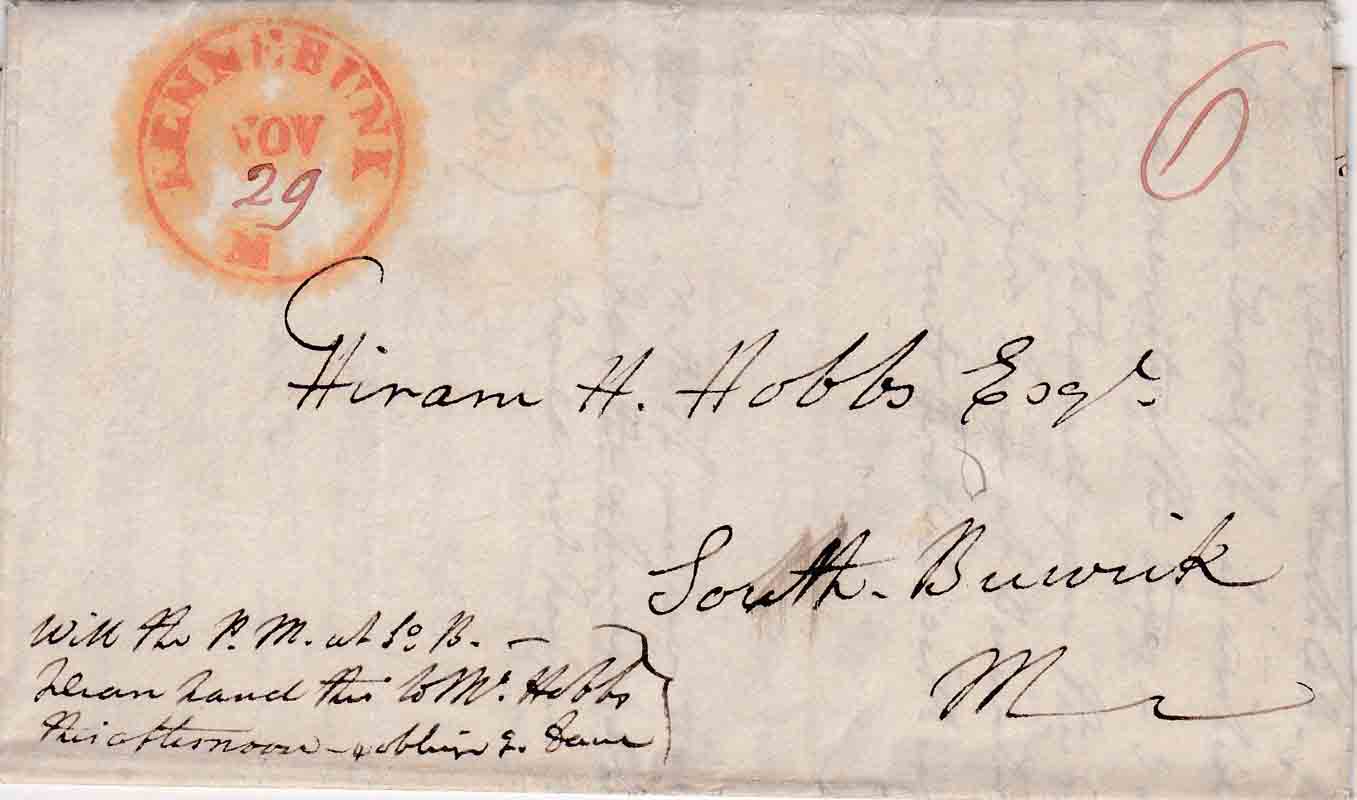 KENNEBUNK
NOV
29
M
6
Hiram H. Hobbs Esqr.
South-Berwick
Me
Will the P. M. at So. B. —
please hand this to Mr. Hobbs
this afternoon — & oblige